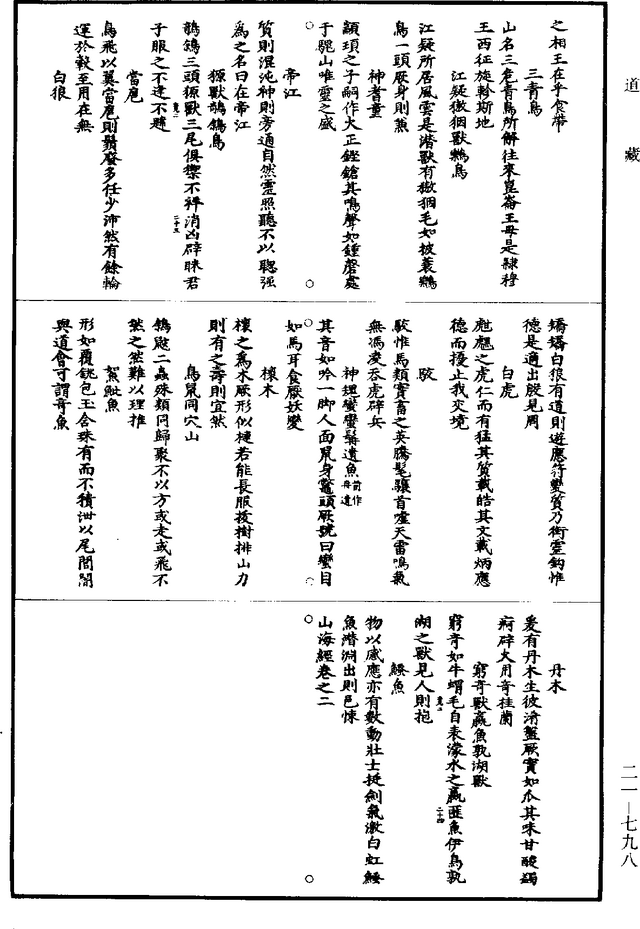 道藏
之相王在乎食帶
三青鳥
山名三危青鳥所解往來崑崙王母是隸穆
王西征旋軫斯地
江疑獓𤝱獸鴟鳥
江疑所居風雲是潛獸有獓𤝱毛如披蓑鴟
鳥一頭厥身則兼
神耆童
顓頊之子嗣作火正鏗鎗其鳴聲如鍾磬處
于騩山唯靈之盛
帝江
質則混沌神則旁通自然靈照聽不以聰强
爲之名曰在帝江
獂獸鵸鵌鳥
鵸鵌三頭獂獸三尾俱禦不祥消凶辟眯君
子服之不逢不韙
當扈
鳥飛以翼當扈則鬚廢多任少沛然有餘輪
運於轂至用在無
白狼
矯矯白狼有道則遊應符變質乃銜靈鈎惟
德是適出殷見周
白虎
魋䰢之虎仁而有猛其質載皓其文載炳應
德而擾止我交境
駮
駮惟馬類實畜之英騰髦驤首噓天雷鳴氣
無馮凌吞虎辟兵
神𩳁蠻蠻髯遺魚前作冉遺
其音如吟一脚人面鼠身鱉頭厥號曰蠻目
如馬耳食厭妖變
櫰木
櫰之爲木厥形似槤若能長服拔樹排山力
則有之壽則宜然
鳥鼠同穴山
鵌鼵二蟲殊類同歸聚不以方或走或飛不
然之然難以理推
絮魮魚
形如覆銚包玉含珠有而不積泄以尾閭闇
與道會可謂奇魚
丹木
爰有丹木生彼洧盤厥實如瓜其味甘酸蠲
痾辟火用奇桂蘭
窮奇獸蠃魚孰湖獸
窮奇如牛蝟毛自表濛水之蠃匪魚伊鳥孰
湖之獸見人則抱
鰠魚
物以感應亦有數動壯士挺劍氣激白虹鰠
魚潛淵出則邑悚
山海經卷之二
二一—七九八